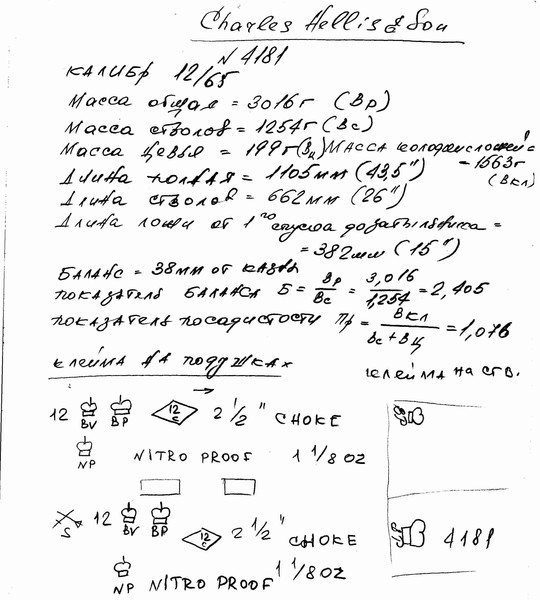 Charles Hellis & Son
N 4181
КАЛИБР 12/65
Масса общая = 3016г (Вр)
Масса стволов = 1254г (Вс)
Масса цевья = 199г (Вц) Масса колодки с ложей =
= 1563г
(Вкл)
Длина полная = 1105мм (43,5")
Длина стволов = 662мм (26")
Длина ложи от 1го спуска до затыльника =
= 382мм (15")
Баланс = 38мм от казны
показатель баланса Б = Вр/Вс = 3,016/1,254 = 2,405
показатель посадистости Пр = Вкл/Вс+Вц = 1,076
клейма на подушках
клейма на ств.
12 BV BP 12 C 2 1/2" CHOKE
NP NITRO PROOF 1 1/8 OZ
S 12 BV BP 12 C 2 1/2" CHOKE
4181
NP NITRO PROOF 1 1/8 OZ